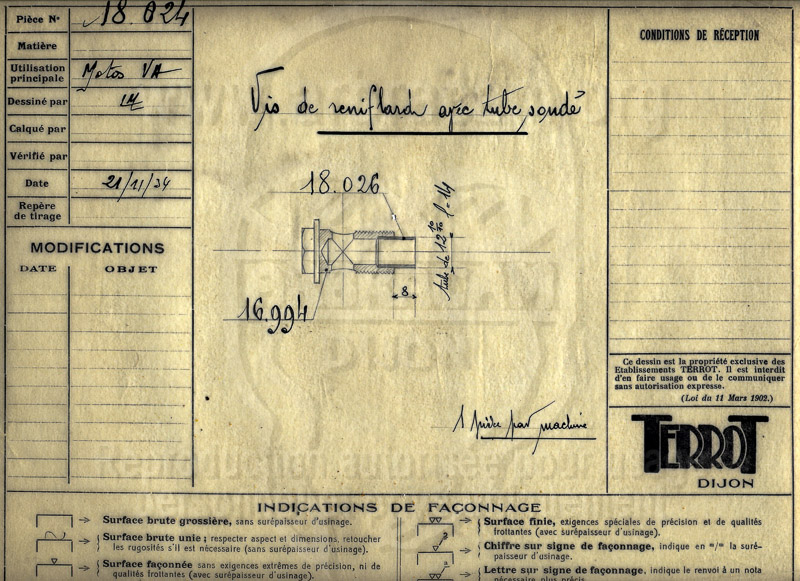 Pièce N° 18.024
Matière
Utilisation
principale Motos VA
Dessiné par
Calqué par
Vérifié par
Date 21/11/34
Repère
de tirage
MODIFICATIONS
DATE OBJET
Vis de reniflard avec tube soudé
18.026
16.994
8
tube de 12 10/10 l=14
1 pièce par machine
CONDITIONS DE RÉCEPTION
Ce dessin est la propriété exclusive des
Etablissements TERROT. Il est interdit
d'en faire usage ou de le communiquer
sans autorisation expresse.
(Loi du 11 Mars 1902.)
TERROT
DIJON
INDICATIONS DE FAÇONNAGE
Surface brute grossière, sans surépaisseur d'usinage.
Surface brute unie ; respecter aspect et dimensions, retoucher
les rugosités s'il est nécessaire (sans surépaisseur d'usinage).
Surface façonnée sans exigences extrêmes de précision, ni de
qualités frottantes (avec surépaisseur d'usinage).
Surface finie, exigences spéciales de précision et de qualités
frottantes (avec surépaisseur d'usinage).
Chiffre sur signe de façonnage, indique en m/m la suré-
paisseur d'usinage.
Lettre sur signe de façonnage, indique le renvoi à un nota
nécessaire plus précis.